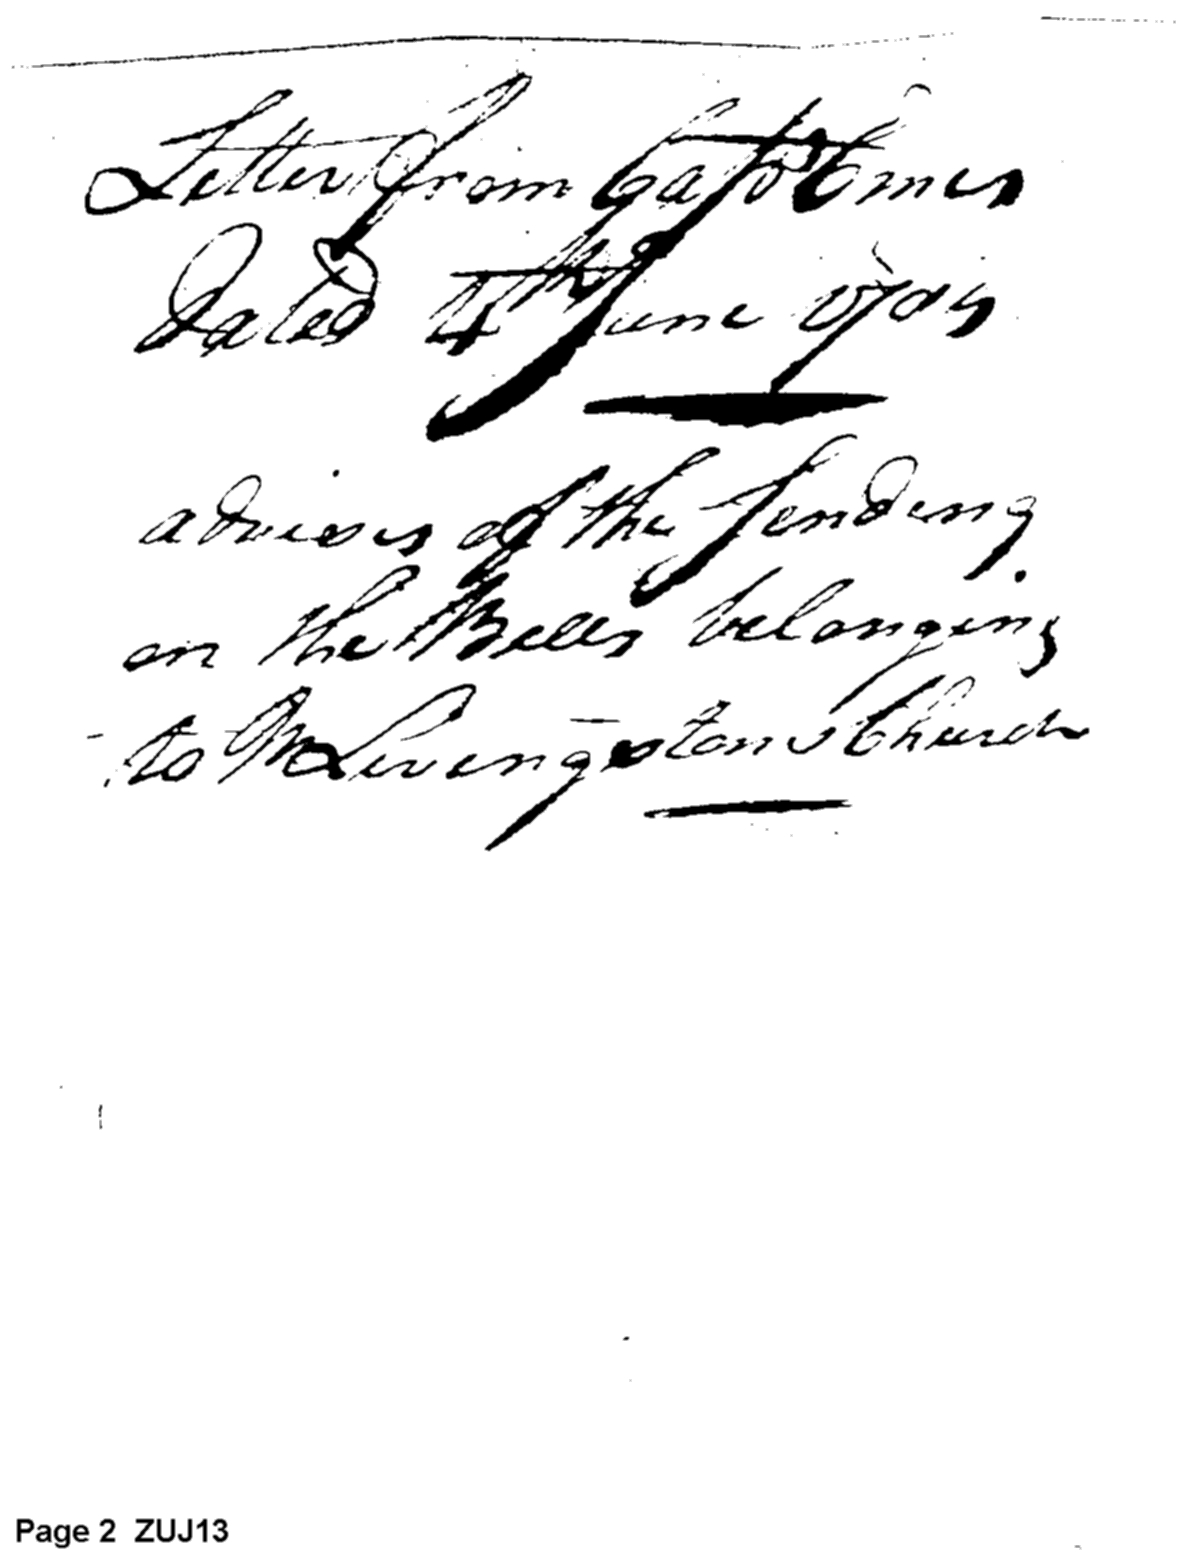 Letter from Capt
Dated 4th June
advises of the Sending
on the Bells belonging
to Mr Livingstons Church
Page 2 ZUJ13